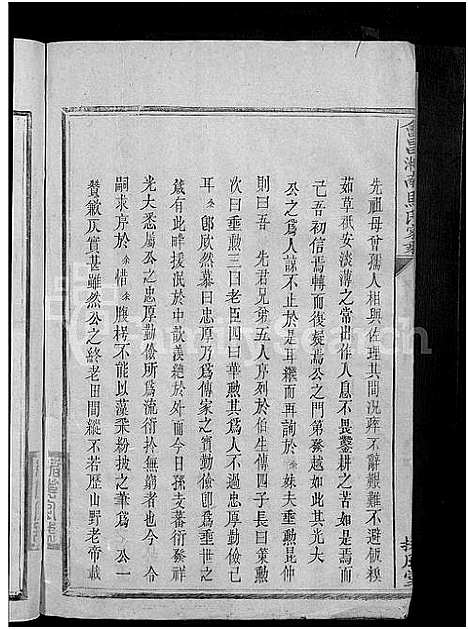 會昌湘南縣氏家譜
先祖母會孺人相與佐理其間況瘁不辭艱難不避飯糗
茹草祇安淡薄之常出作入息不畏鑿耕之苦如是而
已吾初信焉轉而復疑焉公之門第發越如此其光大
公之為人諒不止於是耳繼而再詢於 妹夫垂勲昆仲
則曰吾 先君兄弟五人序列於伯生傳四子長曰策勲
次曰垂勲三曰老臣四曰華勲其為人忠厚勤儉
耳 郎欣然慕曰忠厚乃為傳家之寶勤儉卽為垂世之
箴有此畔援泯於中歆羡絶於外而今日孫支蕃衍發祥
光大悉屬公之忠厚勤儉所為流衍於無窮者也今 令
嗣求序於 余惜 余腹枵不能以藻飛紛披之筆為 公一
贊歎仄實甚雖然公之終老田間縱不若歷山野老帝載